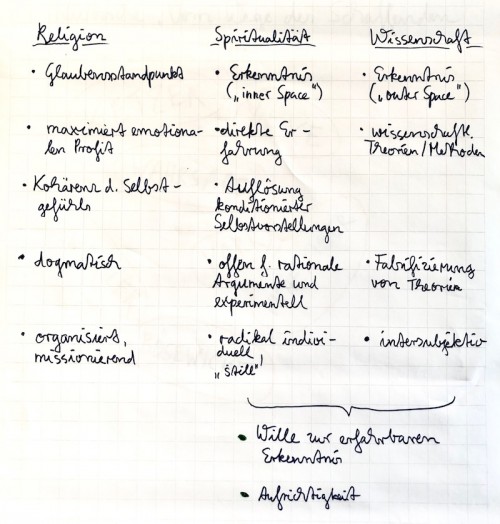 Religion
• Glaubensstandpunkt
• maximiert emotiona-
len Profit
• Kohärenz d. Selbst-
gefühls
• dogmatisch
• organisiert,
missionierend
Spiritualität
• Erkenntnis
("inner Space")
• direkte Er-
fahrung
• Auflösung
konditionierter
Selbstvorstellungen
• offen f. rationale
Argumente und
experimentell
• radikal indivi-
duell,
„still"
Wissenschaft
• Erkenntnis
("outer Space")
• wissenschaftl.
Theorien/Methoden
• Falsifizierung
von Theorien
• intersubjektiv
• Wille zur erfahrbaren
Erkenntnis
• Aufrichtigkeit